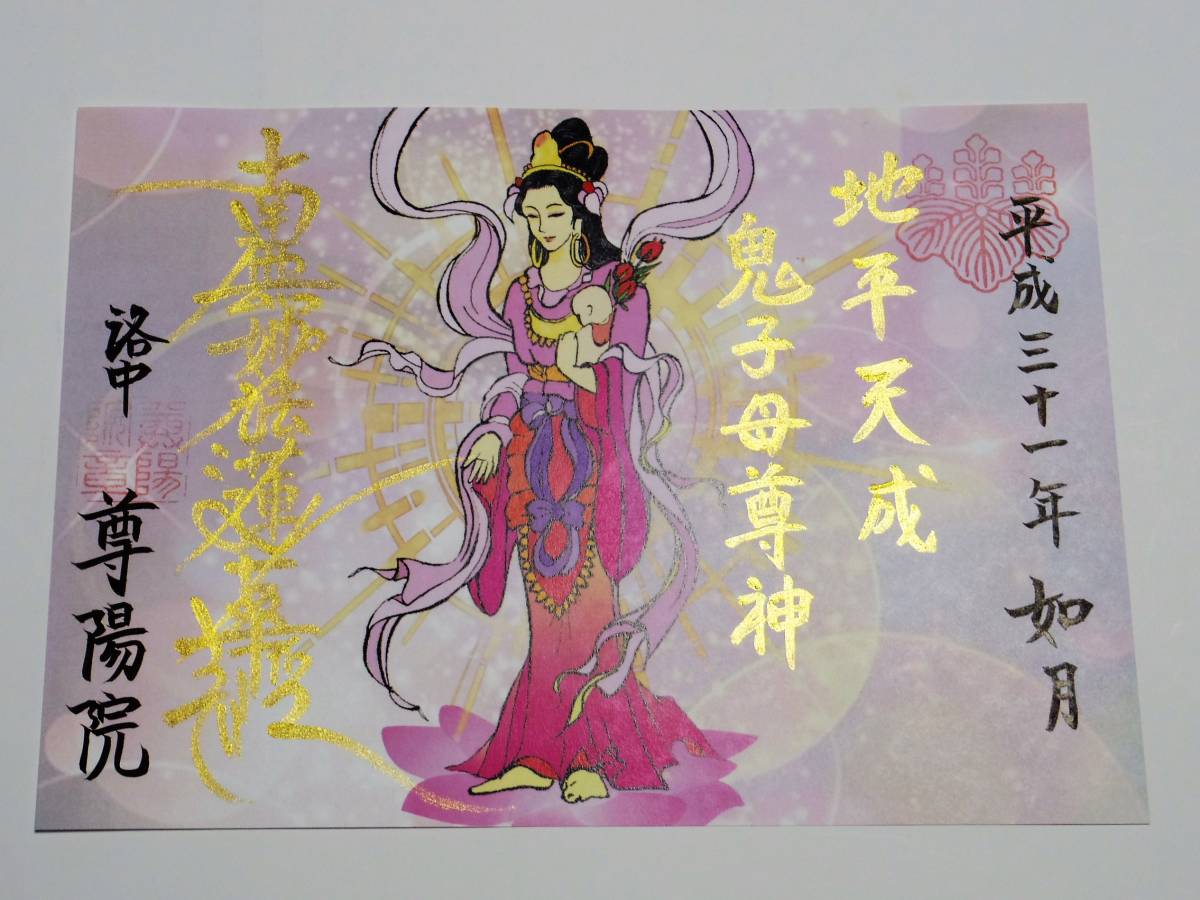 平成三十一年 如月
地平天成
鬼子母尊神
南無妙法蓮華経
洛中 尊陽院